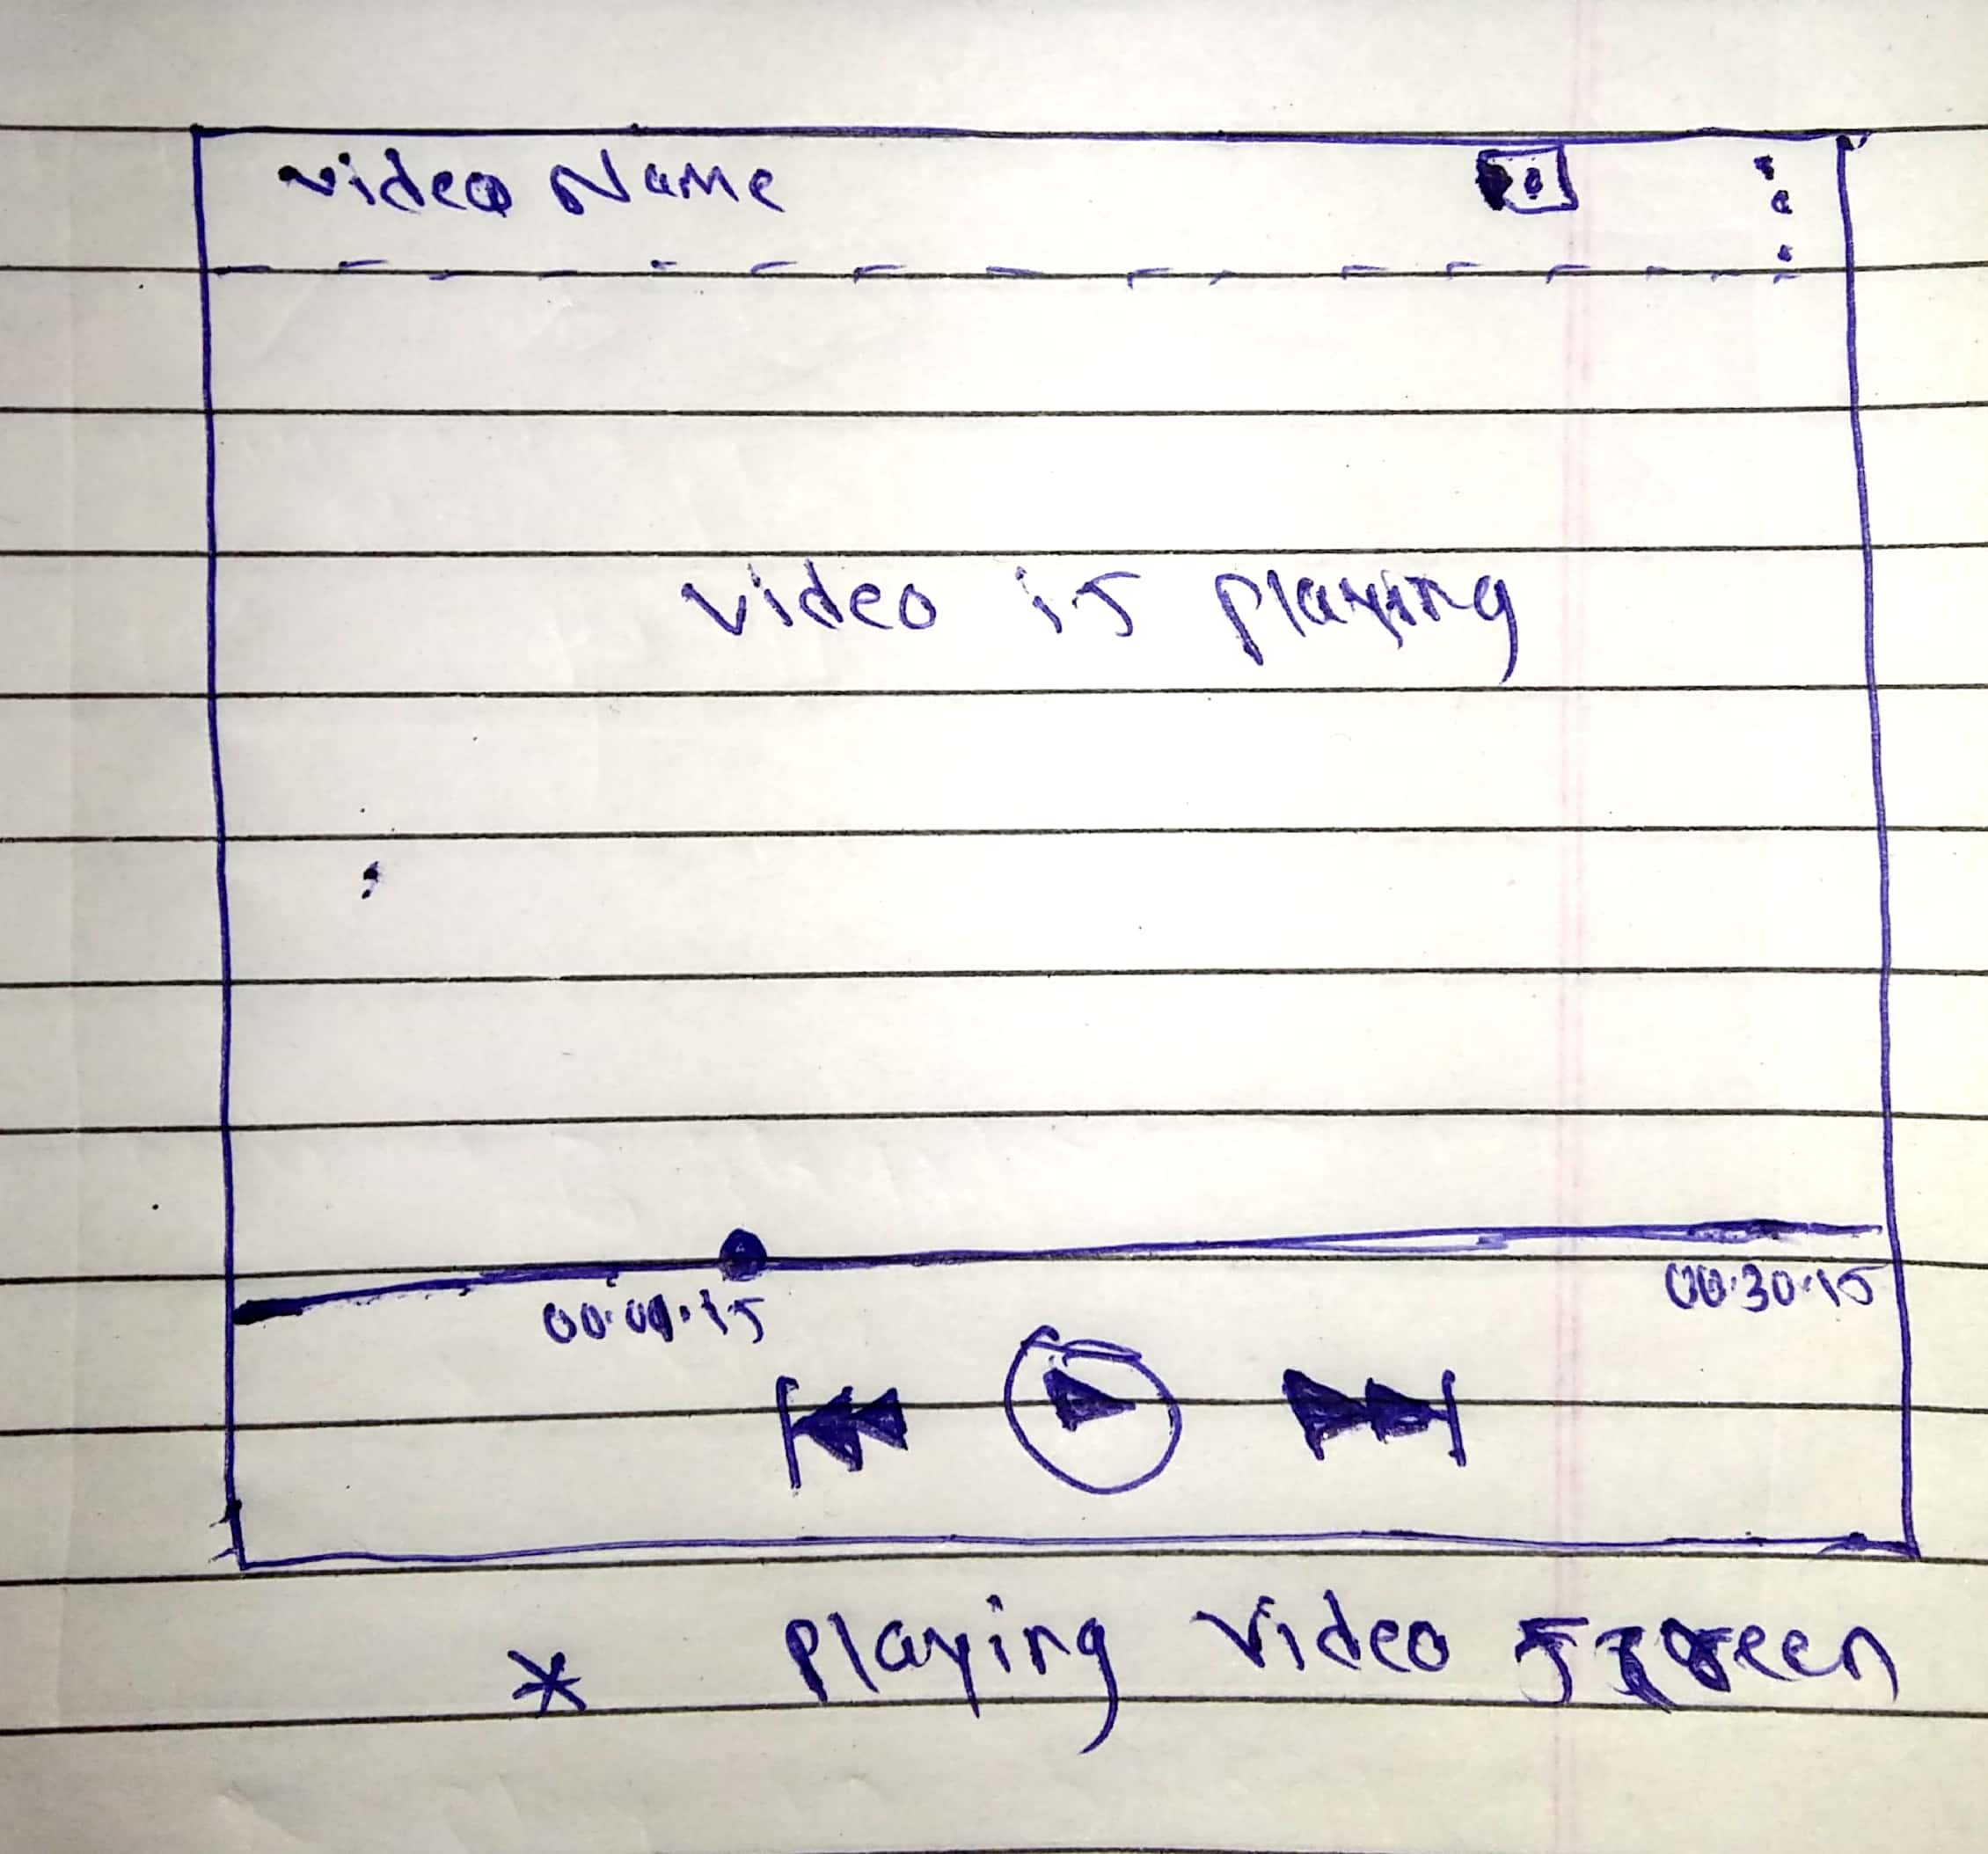 video Name
video is playing
00:30:15
* playing video screen